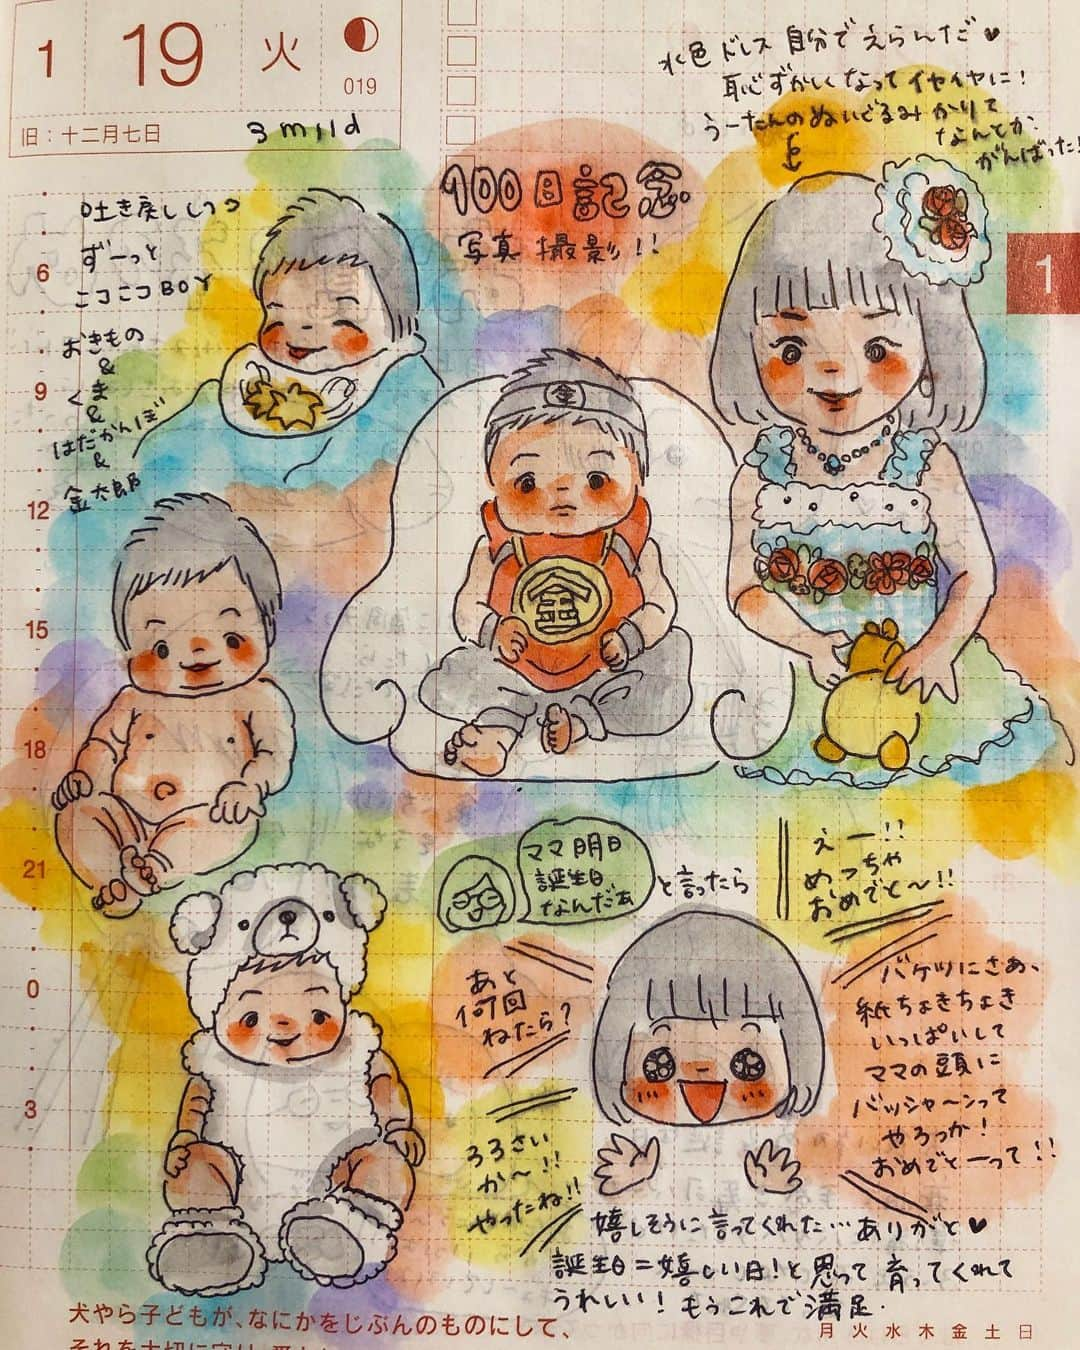 1 19 火
019
旧：十二月七日
3 mild
水色ドレス 自分でえらんだ♥
恥ずかしくなってイヤイヤに！
うーたんのぬいぐるみかりて
なんとか
がんばった！
100日記念
写真撮影！！
吐き戻しつつ
ずーっと
ニコニコBOY
おきもの
&
くま
&
はだかんぼ
&
金太郎
1
金
金
6
9
12
15
18
21
0
3
ママ明日
誕生日
なんだぁ
と言ったら
えー！！
めっちゃ
おめでと〜！！
あと
何回
ねたら？
ろろさい
か〜！！
やったね！！
バケツにさぁ、
紙ちょきちょき
いっぱいして
ママの頭に
バッシャーンって
やろっか！
おめでとーって！！
嬉しそうに言ってくれた…ありがと♥
誕生日＝嬉しい日！と思って育ってくれて
うれしい！もうこれで満足.
犬やら子どもが、なにかをじぶんのものにして、
月 火 水 木 金 土 日